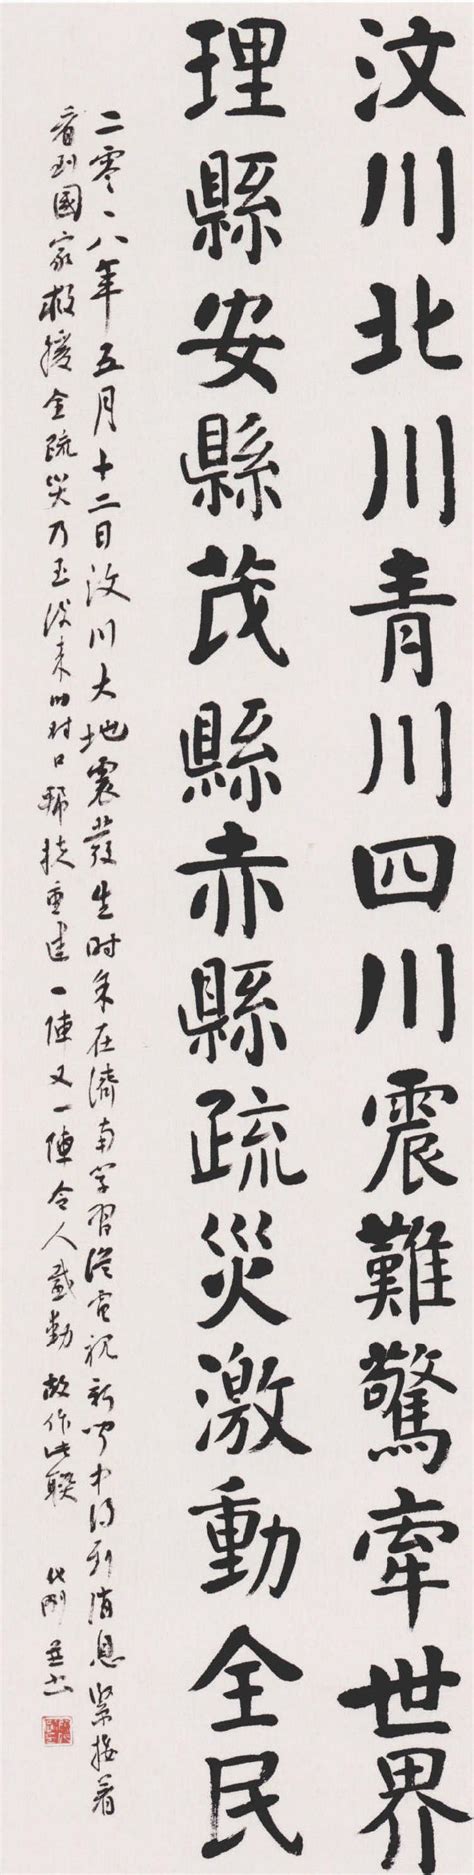 汶川北川青川四川震難驚牽世界
理縣安縣茂縣赤縣疏災激動全民
二零一八年五月十二日汶川大地震發生時余在濟南學習從電視新聞中得到消息緊接着
看到國家救援全疏災乃至後來的對口幫扶重建一陣又一陣令人感動故作此聯